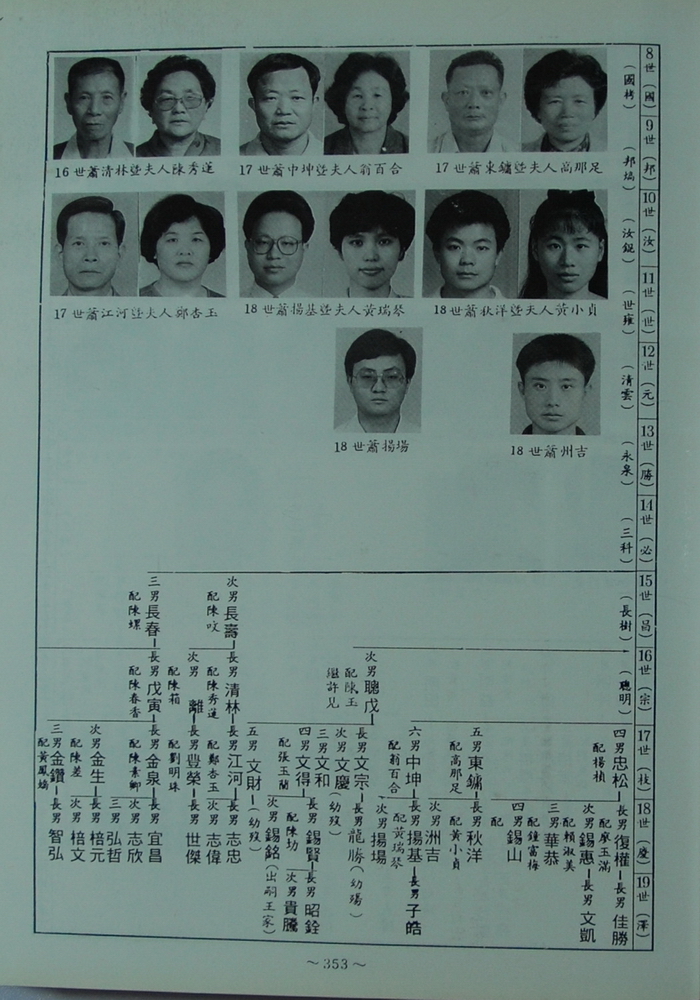 8世（國）
9世（邦）
10世（汝）
11世（世）
12世（元）
13世（勝）
14世（必）
15世（昌）
16世（宗）
17世（枝）
18世（慶）
19世（澤）
（世雍）
（清雲）
（永泉）
（三科）
（長樹）
（聰明）
16世蕭清林暨夫人陳秀蓮
17世蕭中坤暨夫人翁百合
17世蕭東鏞暨夫人高那足
17世蕭江河暨夫人鄭杏玉
18世蕭揚基暨夫人黃瑞琴
18世蕭狄洋暨夫人黃小貞
18世蕭揚場
18世蕭州吉
四男忠松 配楊楨
長男復權 配廖玉滿
長男佳勝
次男錫惠 配賴淑美
長男文凱
三男華恭 配鍾富梅
四男錫山 配
五男東鏞 配高那足
長男秋洋 配黃小貞
次男洲吉
六男中坤 配翁百合
長男揚基 配黃瑞琴
長男子皓
次男揚場
次男聰戊 配陳玉 繼許兒
長男文宗
長男龍勝（幼殤）
次男文慶（幼歿）
三男文和
長男錫賢
長男昭銓
次男貴騰
四男文得 配張玉蘭
次男錫銘（出嗣王家）
五男文財（幼歿）
次男長壽 配陳咬
長男清林 配陳秀蓮
長男江河 配鄭杏玉
長男志忠
次男志偉
次男離 配陳箱
長男豊榮 配劉明珠
長男世傑
三男長春 配陳螺
長男戊寅 配陳春香
長男金泉 配陳素卿
長男宜昌
次男志欣
三男弘哲
次男金生 配陳差
長男棓元
次男棓文
三男金鑽 配黃鳳嬌
長男智弘
～353～